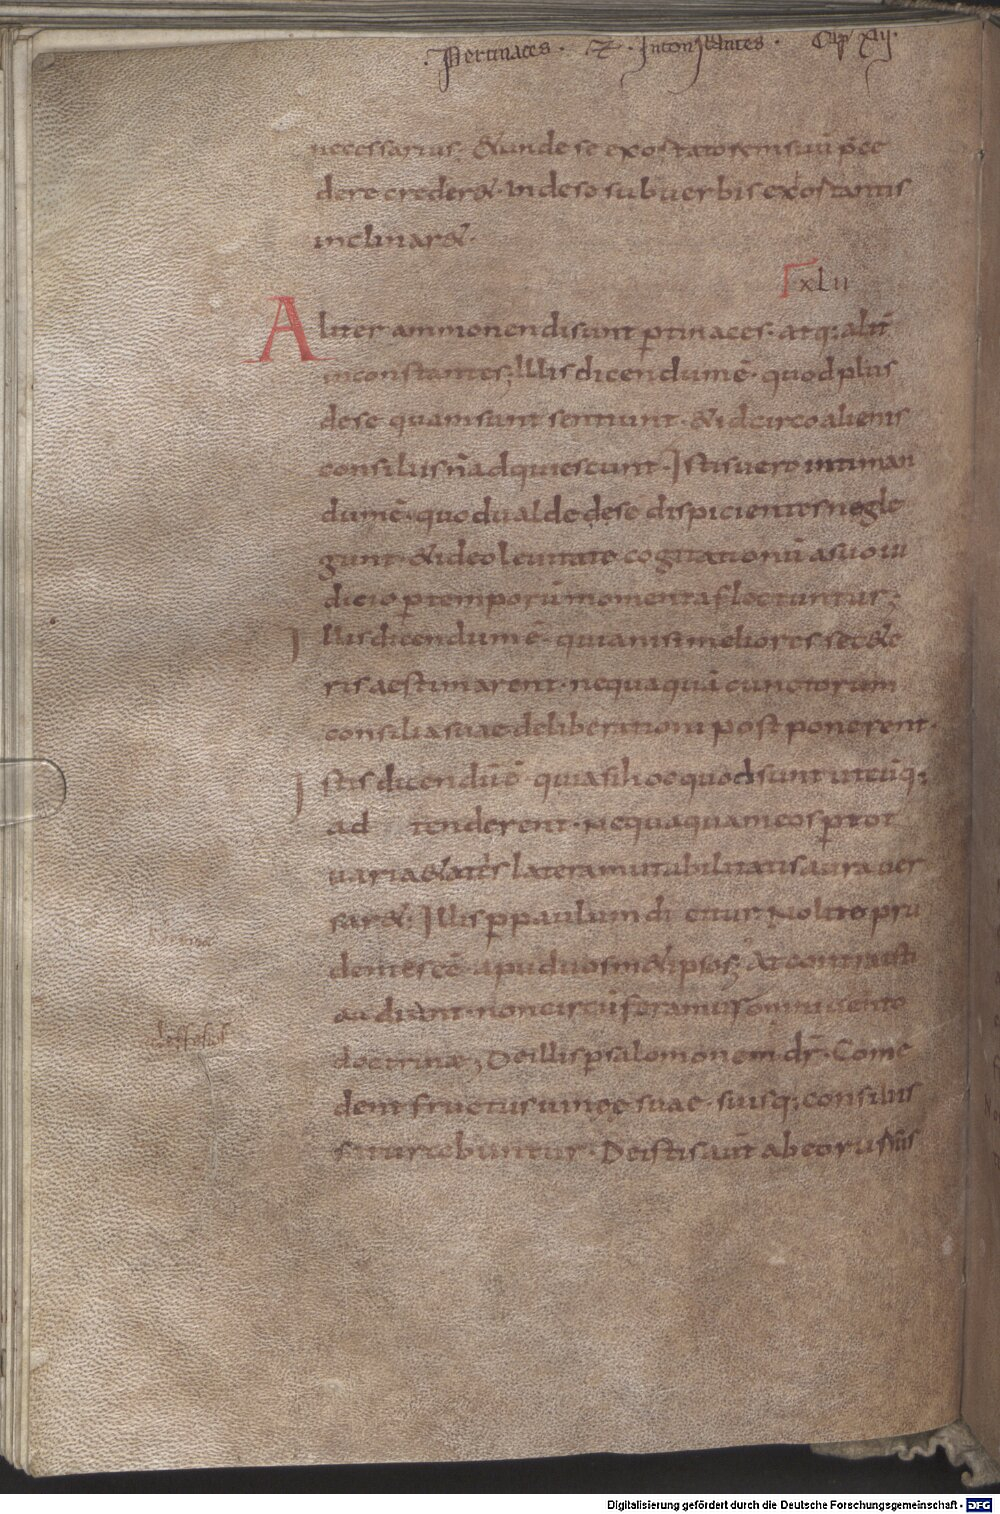 . Pertinaces . & . Inconstantes . Cap xlij.
necessarius; & unde se exortatorem suū p̄ce
dere creder&. inde se sub uerbis exortantis
inclinar&.
xlii
Aliter ammonendi sunt ꝑtinaces. atq; alit̄
inconstantes; Illis dicendum ē. quod plus
de se quam sunt sentiunt. & idcirco alienis
consiliis n̄ adquiescunt. Istis uero intiman
dum ē. quod ualde de se dispicientes negle
gunt. & ideo leuitate cogitationū a suo iu
dicio ꝑ temporū momenta flectuntur;
Illis dicendum ē. quia nisi meliores se c&e
ris aestimarent. nequaquā cunctorum
consilia suae deliberationi postponerent.
Istis dicendū ē. quia si hoc quod sunt utcūq;
ad tenderent. Nequaquam eos ꝑ tot
uaria&atis latera mutabilitatis aura uer
sar&. Illis ꝑ paulum dicitur. Nolite pru
dentes eē. apud uosm&ipsos; At contra isti
audiant. non circūferamur omni uento
doctrinae; De illis ꝑ salomonem dr̄. Come
dent fructus uiae suae. suisq; consiliis
saturabuntur. De istis aūt ab eo rursū